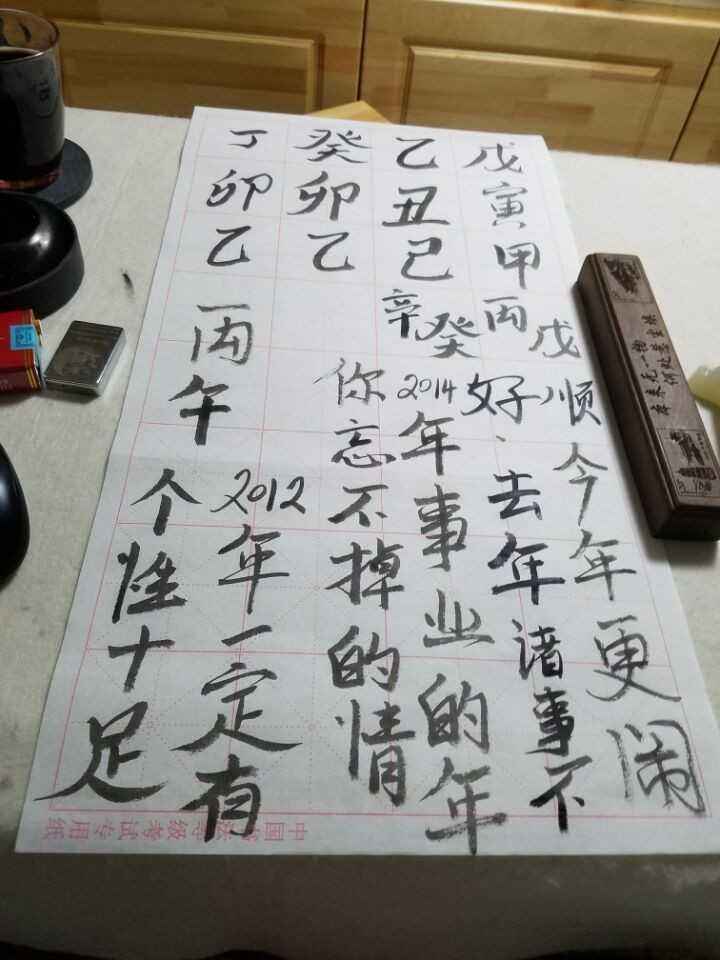 戊寅甲丙戊
乙丑己辛癸
癸卯乙
丁卯乙
一丙午
个性十足
2012年一定有
你忘不掉的情
2014年事业的年
好、去年诸事不
顺今年更闹
级考试专用纸
本来无一物
何处惹尘埃